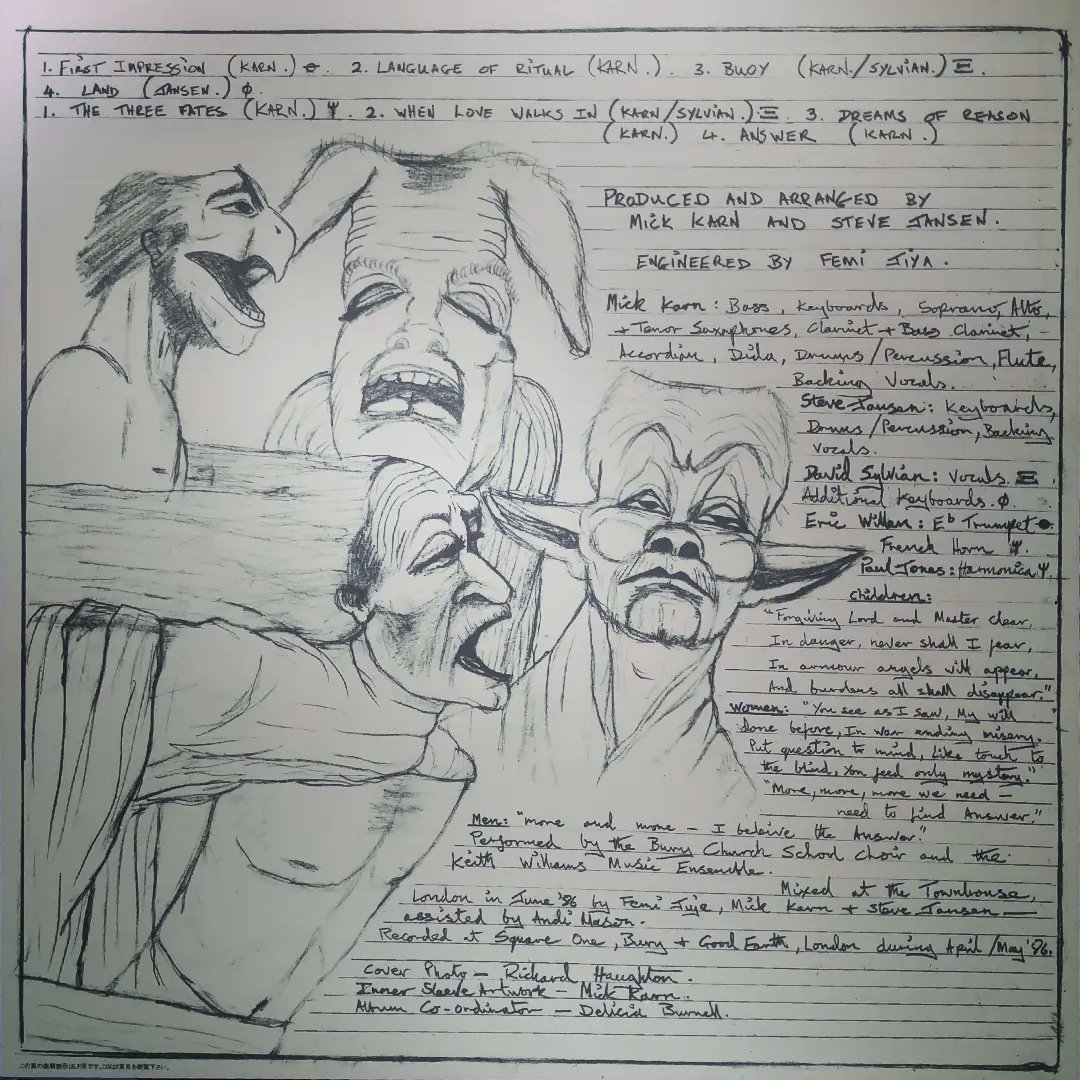 1. FIRST IMPRESSION (KARN.) ⊖. 2. LANGUAGE OF RITUAL (KARN.). 3. BUOY (KARN./SYLVIAN.) Ξ.
4. LAND (JANSEN.) ϕ.
1. THE THREE FATES (KARN.) Ψ. 2. WHEN LOVE WALKS IN (KARN/SYLVIAN.) Ξ. 3. DREAMS OF REASON
(KARN.) 4. ANSWER (KARN.)
PRODUCED AND ARRANGED BY
MICK KARN AND STEVE JANSEN.
ENGINEERED BY FEMI JIYA.
Mick Karn: Bass, Keyboards, Soprano, Alto,
+ Tenor Saxophones, Clarinet + Bass Clarinet,
Accordian, Dida, Drums/Percussion, Flute,
Backing Vocals.
Steve Jansen: Keyboards,
Drums/Percussion, Backing
Vocals.
David Sylvian: Vocals Ξ.
Additional Keyboards. ϕ.
Eric Willem: E♭ Trumpet ⊖.
French Horn Ψ.
Paul Jones: Harmonica Ψ.
Children:
"Forgiving Lord and Master dear,
In danger, never shall I fear,
In armour angels will appear,
And burdens all shall disappear."
Women: "You see as I saw, My will
done before, In war ending misery.
Put question to mind, Like touch to
the blind, You feed only mystery."
"More, more, more we need —
need to find Answer."
Men: "more and more — I beleive the Answer."
Performed by the Bury Church School Choir and the
Keith Williams Music Ensemble.
Mixed at the Townhouse,
London in June '86 by Femi Jiya, Mick Karn + Steve Jansen —
assisted by Andi Mason.
Recorded at Square One, Bury + Good Earth, London during April/May '86.
Cover Photo — Richard Haughton.
Inner Sleeve Artwork — Mick Karn.
Album Co-ordinator — Delicia Burnell.
この頁の曲順表示はLP用です。CDは2頁目を御覧下さい。